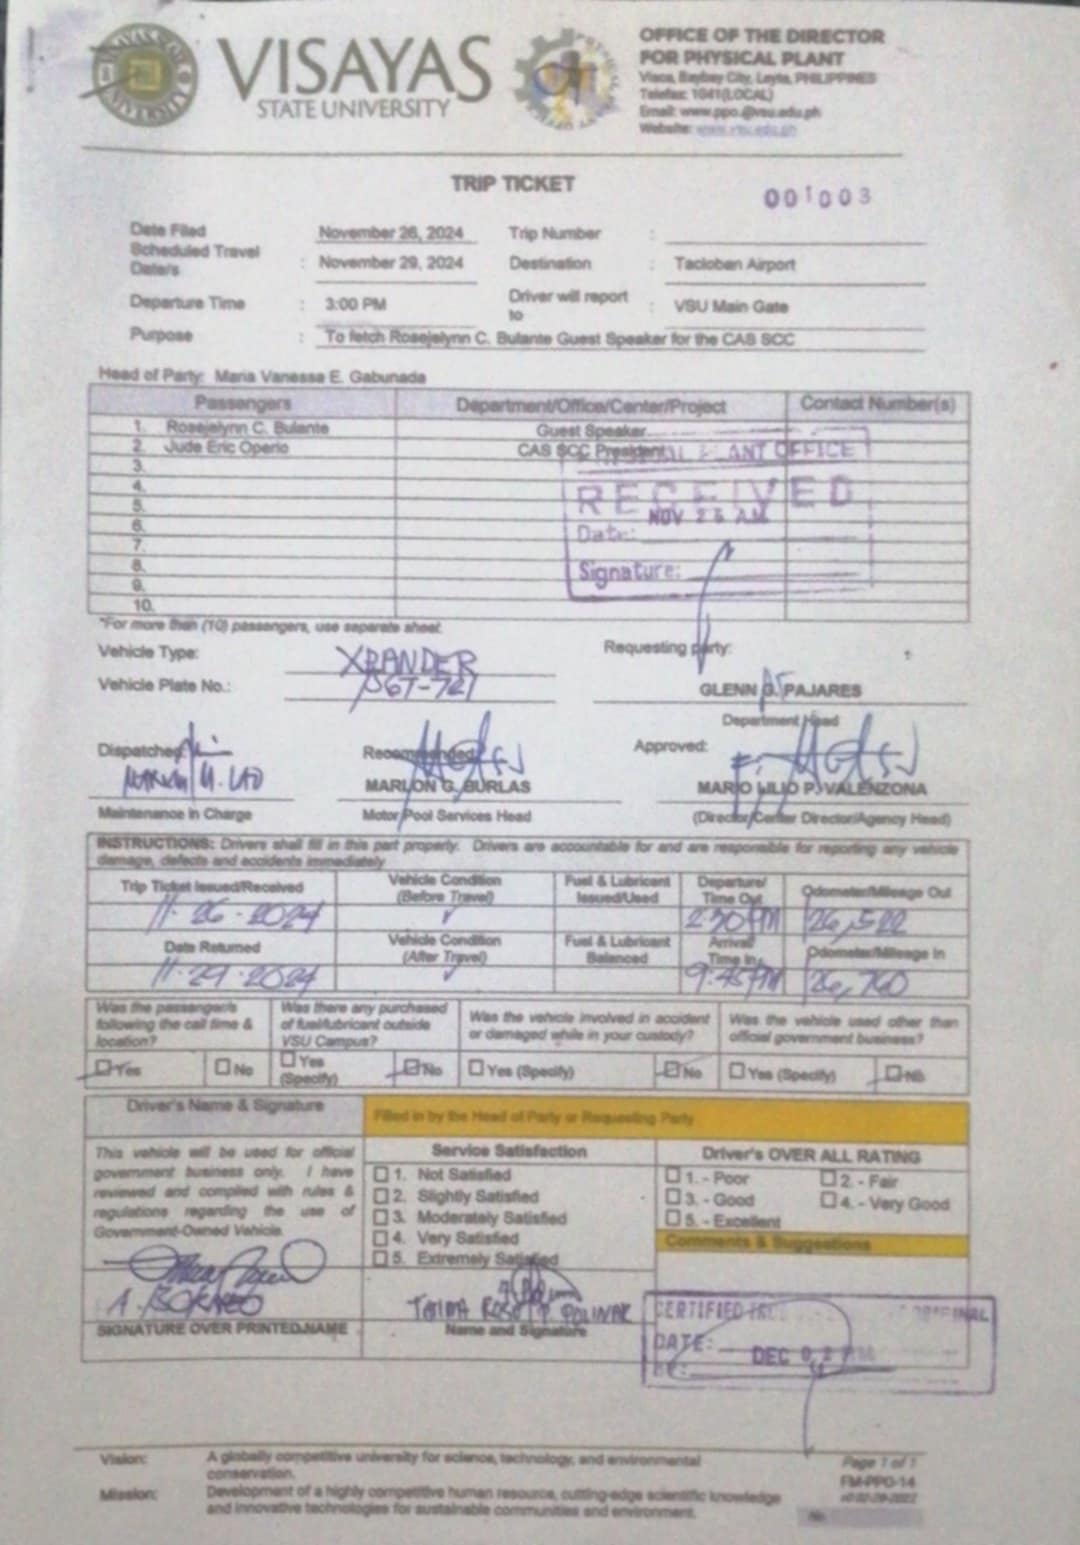 VISAYAS
STATE UNIVERSITY
OFFICE OF THE DIRECTOR
FOR PHYSICAL PLANT
Visca, Baybay City, Leyte, PHILIPPINES
Telefax: 1041(LOCAL)
Email: www.ppo.@vsu.edu.ph
Website: www.vsu.edu.ph
TRIP TICKET
001003
Date Filed November 26, 2024 Trip Number :
Scheduled Travel Date/s : November 29, 2024 Destination : Tacloban Airport
Departure Time : 3:00 PM Driver will report to : VSU Main Gate
Purpose : To fetch Rosejelynn C. Bulante Guest Speaker for the CAS SCC
Head of Party: Maria Vanessa E. Gabunada
Passengers Department/Office/Center/Project Contact Number(s)
1. Rosejelynn C. Bulante Guest Speaker
2. Jude Eric Operio CAS SCC President
3.
4.
5.
6.
7.
8.
9.
10.
PLANT OFFICE
RECEIVED
NOV 26 A.M.
Date:
Signature:
*For more than (10) passengers, use separate sheet.
Vehicle Type: XPANDER Requesting party:
Vehicle Plate No.:
GLENN G. PAJARES
Department Head
Dispatched: Recommended: Approved:
MARLON G. BURLAS MARIO LILIO P. VALENZONA
Maintenance in Charge Motor Pool Services Head (Director/Center Director/Agency Head)
INSTRUCTIONS: Drivers shall fill in this part properly. Drivers are accountable for and are responsible for reporting any vehicle
damage, defects and accidents immediately
Trip Ticket Issued/Received Vehicle Condition (Before Travel) Fuel & Lubricant Issued/Used Departure/ Time Out Odometer/Mileage Out
11-26-2024 ✓ 2:30 PM 26,522
Date Returned Vehicle Condition (After Travel) Fuel & Lubricant Balanced Arrival Time In Odometer/Mileage In
11-29-2024 ✓ 9:45 PM 26,760
Was the passenger/s following the call time & location? Was there any purchased of fuel/lubricant outside VSU Campus? Was the vehicle involved in accident or damaged while in your custody? Was the vehicle used other than official government business?
☐ Yes ☐ No ☐ Yes (Specify) ☐ No ☐ Yes (Specify) ☐ No ☐ Yes (Specify) ☐ No
Driver's Name & Signature Filled in by the Head of Party or Requesting Party
This vehicle will be used for official
government business only. I have
reviewed and complied with rules &
regulations regarding the use of
Government-Owned Vehicle.
A. BORNEO
SIGNATURE OVER PRINTED NAME
Service Satisfaction
☐ 1. Not Satisfied
☐ 2. Slightly Satisfied
☐ 3. Moderately Satisfied
☐ 4. Very Satisfied
☐ 5. Extremely Satisfied
Name and Signature
Driver's OVER ALL RATING
☐ 1. - Poor ☐ 2. - Fair
☐ 3. - Good ☐ 4. - Very Good
☐ 5. - Excellent
Comments & Suggestions
CERTIFIED
DATE: DEC
Vision: A globally competitive university for science, technology, and environmental
conservation.
Mission: Development of a highly competitive human resource, cutting-edge scientific knowledge
and innovative technologies for sustainable communities and environment.
Page 1 of 1
FM-PPO-14
No.